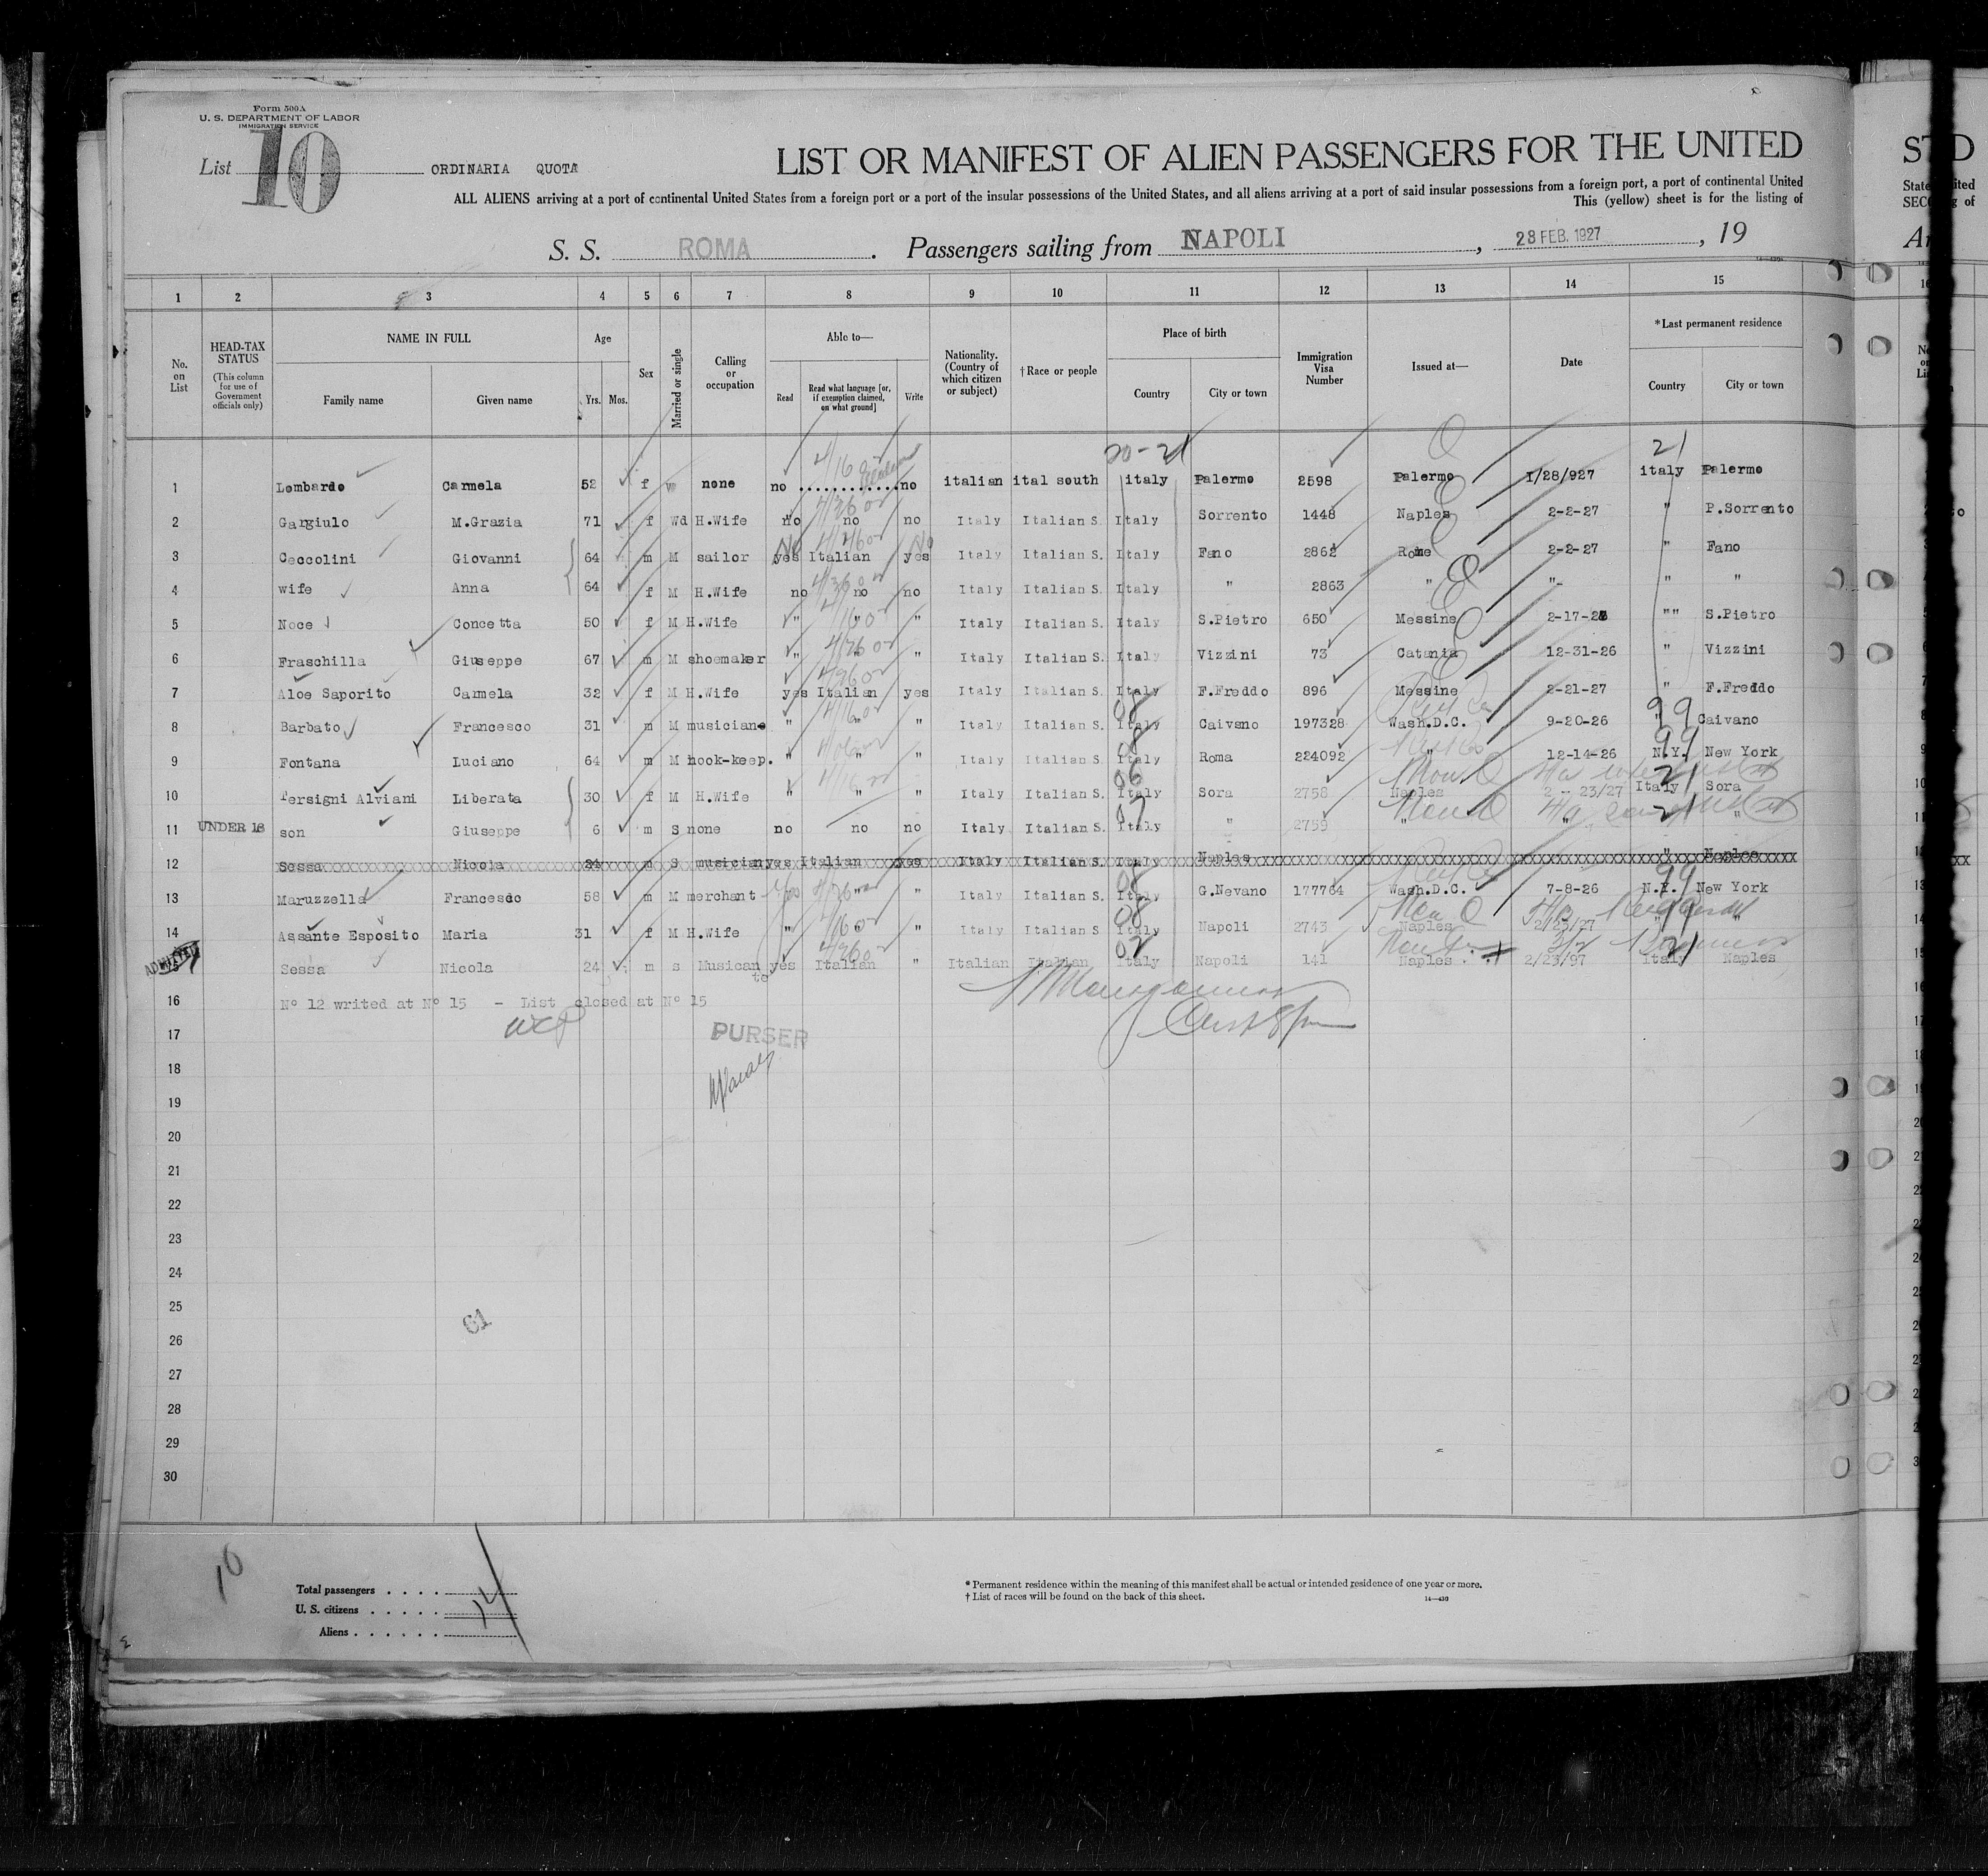 Form 500A
U. S. DEPARTMENT OF LABOR
IMMIGRATION SERVICE
List 10 ORDINARIA QUOTA
LIST OR MANIFEST OF ALIEN PASSENGERS FOR THE UNITED
ALL ALIENS arriving at a port of continental United States from a foreign port or a port of the insular possessions of the United States, and all aliens arriving at a port of said insular possessions from a foreign port, a port of continental United
This (yellow) sheet is for the listing of
S. S. ROMA. Passengers sailing from NAPOLI, 28 FEB. 1927, 19
1 2 3 4 5 6 7 8 9 10 11 12 13 14 15
No. on List
HEAD-TAX STATUS
(This column for use of Government officials only)
NAME IN FULL
Family name Given name
Age
Yrs. Mos.
Sex
Married or single
Calling or occupation
Able to—
Read
Read what language [or, if exemption claimed, on what ground]
Write
Nationality. (Country of which citizen or subject)
†Race or people
Place of birth
Country City or town
Immigration Visa Number
Issued at—
Date
*Last permanent residence
Country City or town
20-21 21
1 Lombardo Carmela 52 f none no ............ no italian ital south italy Palermo 2598 Palermo 1/28/927 italy Palermo
2 Gargiulo M.Grazia 71 f Wd H.Wife no no no Italy Italian S. Italy Sorrento 1448 Naples 2-2-27 " P.Sorrento
3 Ceccolini Giovanni 64 m M sailor yes Italian yes Italy Italian S. Italy Fano 2862 Rome 2-2-27 " Fano
4 wife Anna 64 f M H.Wife no no no Italy Italian S. Italy " 2863 " "- " "
5 Noce Concetta 50 f M H.Wife " " " Italy Italian S. Italy S.Pietro 650 Messine 2-17-27 "" S.Pietro
6 Fraschilla Giuseppe 67 m M shoemaker " " " Italy Italian S. Italy Vizzini 73 Catania 12-31-26 " Vizzini
7 Aloe Saporito Carmela 32 f M H.Wife yes Italian yes Italy Italian S. Italy F.Freddo 896 Messine 2-21-27 " F.Freddo
8 Barbato Francesco 31 m M musician " " " Italy Italian S. Italy Caivano 197328 Wash.D.C. 9-20-26 " Caivano
9 Fontana Luciano 64 m M hook-keep. " " " Italy Italian S. Italy Roma 224092 " 12-14-26 N.Y. New York
10 Tersigni Alviani Liberata 30 f M H.Wife " " " Italy Italian S. Italy Sora 2758 Naples 2 - 23/27 Italy Sora
11 UNDER 16 son Giuseppe 6 m S none no no no Italy Italian S. Italy " 2759 " " " "
12 Sessa Nicola 24 m S musician yes Italian yes Italy Italian S. Italy Naples " Naples
13 Maruzzella Francesco 58 m M merchant " " Italy Italian S. Italy G.Nevano 177764 Wash.D.C. 7-8-26 N.Y. New York
14 Assante Esposito Maria 31 f M H.Wife " " " Italy Italian S Italy Napoli 2743 Naples 2/23/27 " "
ADMITTED
15 Sessa Nicola 24 m s Musican yes Italian " Italian Italian Italy Napoli 141 Naples 2/23/97 Italy Naples
16 Nº 12 writed at Nº 15 - List closed at Nº 15
17 PURSER
18
19
20
21
22
23
24
25
61
26
27
28
29
30
10
Total passengers . . . .
U. S. citizens . . . . . 14
Aliens . . . . . .
* Permanent residence within the meaning of this manifest shall be actual or intended residence of one year or more.
† List of races will be found on the back of this sheet.
14—430